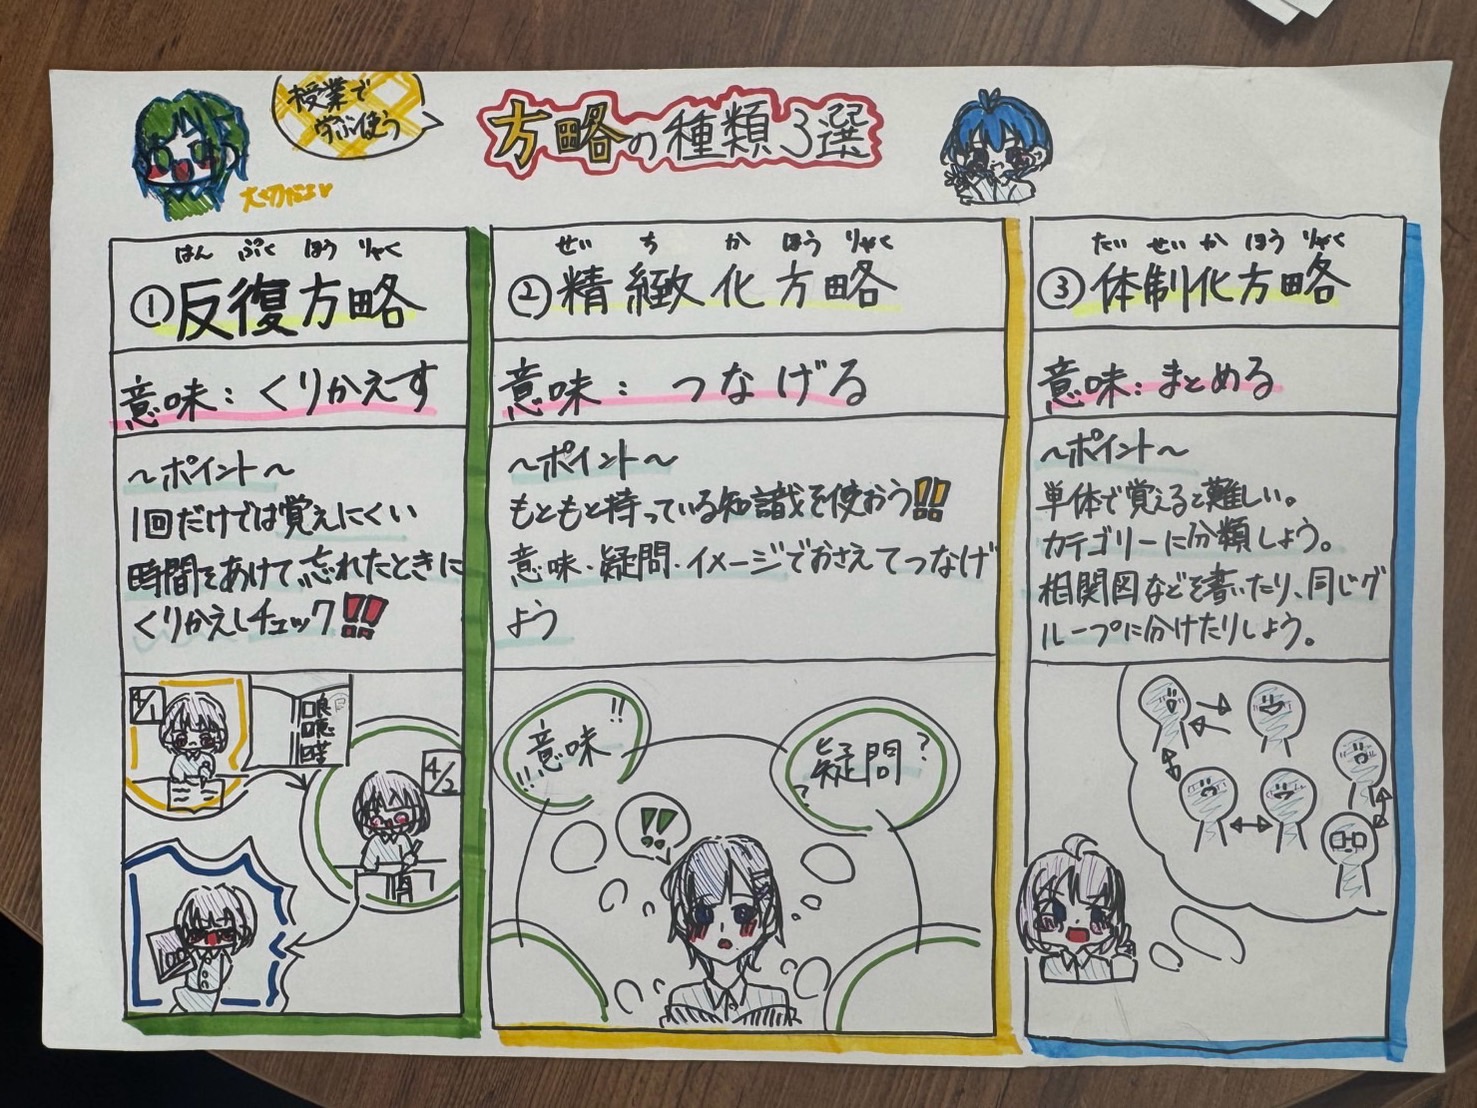 授業で
学ぶ使う
大切だよ♥
方略の種類3選
はん ぷく ほう りゃく
①反復方略
意味：くりかえす
～ポイント～
1回だけでは覚えにくい
時間をあけて忘れたときに
くりかえしチェック!!
4/1
4/2
100
せい ち か ほう りゃく
②精緻化方略
意味：つなげる
～ポイント～
もともと持っている知識を使おう!!
意味・疑問・イメージでおさえてつなげ
よう
!!
意味
!!
疑問?
?
!!
たい せい か ほう りゃく
③体制化方略
意味：まとめる
～ポイント～
単体で覚えると難しい。
カテゴリーに分類しよう。
相関図などを書いたり、同じグ
ループに分けたりしよう。